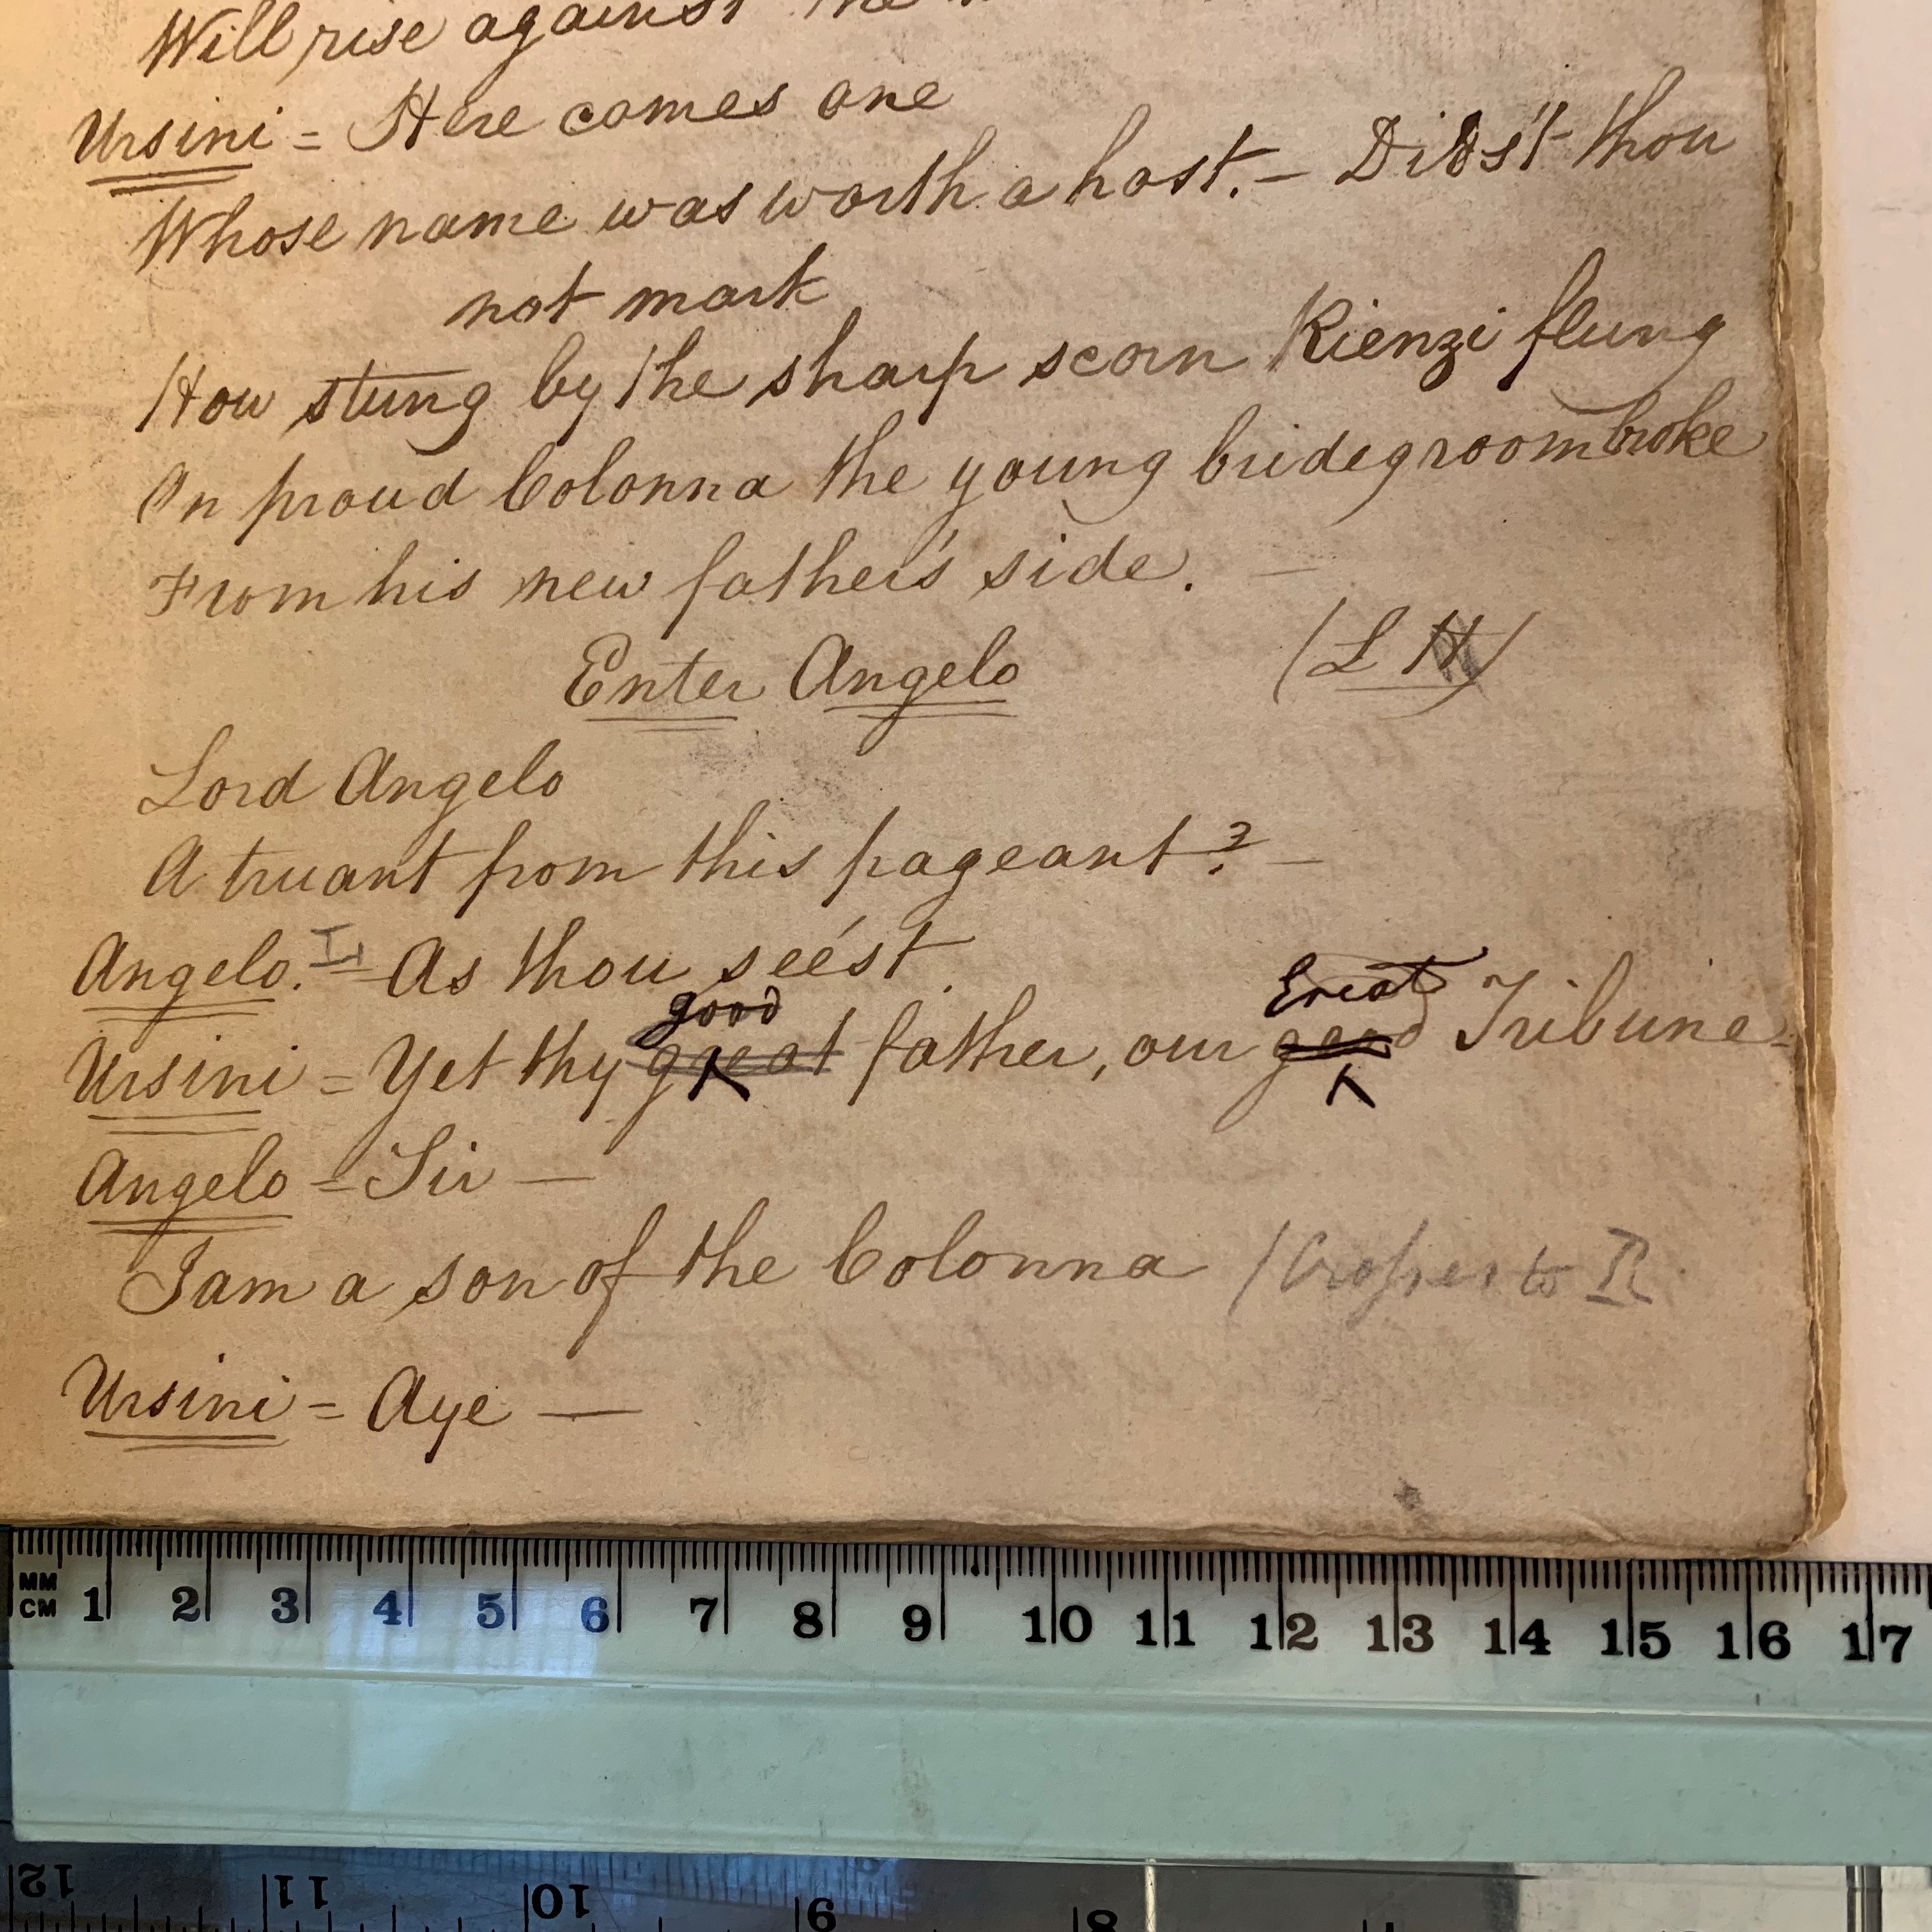 Will rise against the
Ursini = Here comes one
Whose name was worth a host. – Did'st thou
not mark
How stung by the sharp scorn Rienzi flung
On proud Colonna the young bridegroom broke
From his new father's side. —
Enter Angelo (L H)
Lord Angelo
A truant from this pageant? —
Angelo. L = As thou see'st
good Great
Ursini = Yet thy great father, our good Tribune =
Angelo = Sir —
I am a son of the Colonna (Crosses to R
Ursini = Aye —
MM
CM 1 2 3 4 5 6 7 8 9 10 11 12 13 14 15 16 17
12 11 10 9 8